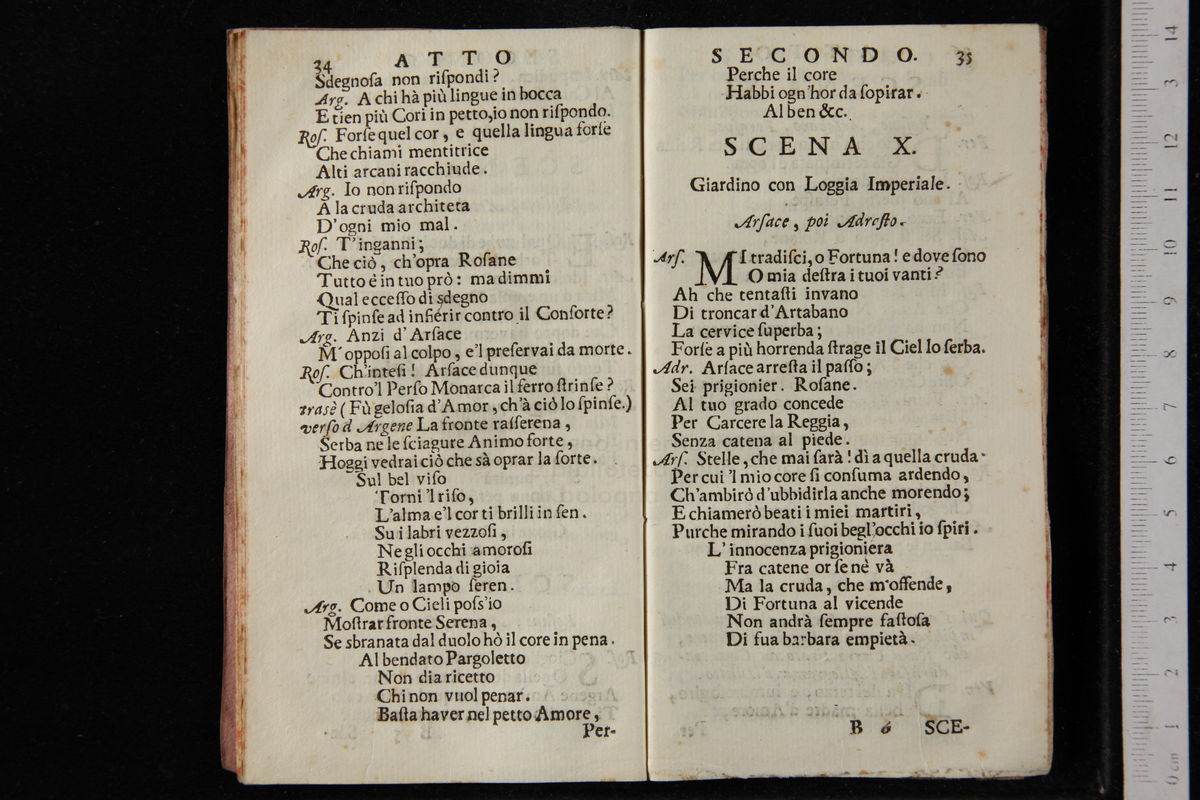 34 ATTO
Sdegnoſa non riſpondi?
Arg. A chi hà più lingue in bocca
E tien più Cori in petto, io non riſpondo.
Roſ. Forſe quel cor, e quella lingua forſe
Che chiami mentitrice
Alti arcani racchiude.
Arg. Io non riſpondo
A la cruda architeta
D'ogni mio mal.
Roſ. T'inganni;
Che ciò, ch'opra Roſane
Tutto è in tuo prò: ma dimmi
Qual ecceſſo di sdegno
Ti ſpinſe ad inſiérir contro il Conſorte?
Arg. Anzi d'Arſace
M'oppoſi al colpo, e'l preſervai da morte.
Roſ. Ch'inteſi! Arſace dunque
Contro'l Perſo Monarca il ferro ſtrinſe?
trasè (Fù geloſia d'Amor, ch'à ciò lo ſpinſe.)
verſo d Argene La fronte raſſerena,
Serba ne le ſciagure Animo forte,
Hoggi vedrai ciò che sà oprar la ſorte.
Sul bel viſo
Torni 'l riſo,
L'alma e'l cor ti brilli in ſen.
Su i labri vezzoſi,
Ne gli occhi amoroſi
Riſplenda di gioia
Un lampo ſeren.
Arg. Come o Cieli poſs'io
Moſtrar fronte Serena,
Se sbranata dal duolo hò il core in pena.
Al bendato Pargoletto
Non dia ricetto
Chi non vuol penar.
Baſta haver nel petto Amore,
Per-
SECONDO. 35
Perche il core
Habbi ogn'hor da ſopirar.
Al ben &c.
SCENA X.
Giardino con Loggia Imperiale.
Arſace, poi Adreſto.
Arſ. MI tradiſci, o Fortuna! e dove ſono
O mia deſtra i tuoi vanti?
Ah che tentaſti invano
Di troncar d'Artabano
La cervice ſuperba;
Forſe a più horrenda ſtrage il Ciel lo ſerba.
Adr. Arſace arreſta il paſſo;
Sei prigionier. Roſane.
Al tuo grado concede
Per Carcere la Reggia,
Senza catena al piede.
Arſ. Stelle, che mai ſarà! dì a quella cruda
Per cui 'l mio core ſi conſuma ardendo,
Ch'ambirò d'ubbidirla anche morendo;
E chiamerò beati i miei martiri,
Purche mirando i ſuoi begl'occhi io ſpiri.
L'innocenza prigioniera
Fra catene or ſe nè và
Ma la cruda, che m'offende,
Di Fortuna al vicende
Non andrà ſempre faſtoſa
Di ſua barbara empietà.
B 6 SCE-
0 cm 1 2 3 4 5 6 7 8 9 10 11 12 3 14